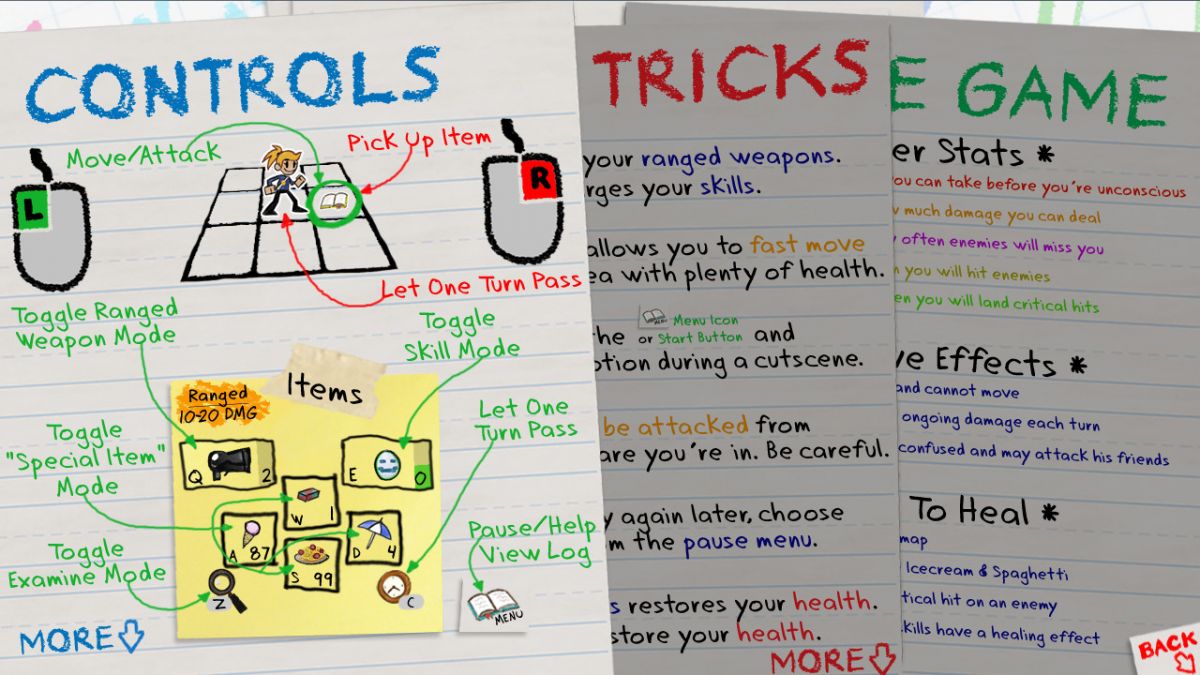 CONTROLS
Move/Attack
Pick Up Item
L
R
Let One Turn Pass
Toggle Ranged
Weapon Mode
Toggle
Skill Mode
Items
Ranged
10-20 DMG
Let One
Turn Pass
Toggle
"Special Item"
Mode
Q 2
E 0
W 1
A 87
D 4
S 99
Toggle
Examine Mode
Z
C
Pause/Help
View Log
MENU
MORE
TRICKS
your ranged weapons.
rges your skills.
allows you to fast move
ea with plenty of health.
the MENU Menu Icon
or Start Button and
otion during a cutscene.
be attacked from
are you're in. Be careful.
y again later, choose
m the pause menu.
s restores your health.
store your health.
MORE
E GAME
er Stats *
you can take before you're unconscious
w much damage you can deal
y often enemies will miss you
n you will hit enemies
en you will land critical hits
ve Effects *
and cannot move
ongoing damage each turn
confused and may attack his friends
To Heal *
map
Icecream & Spaghetti
tical hit on an enemy
kills have a healing effect
BACK